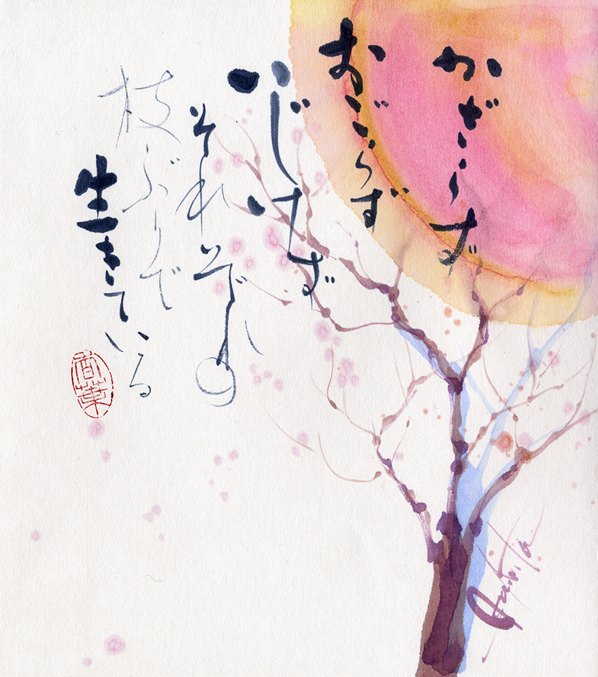 かざらず
おごらず
いじけず
それぞれの
枝ぶりで
生きている